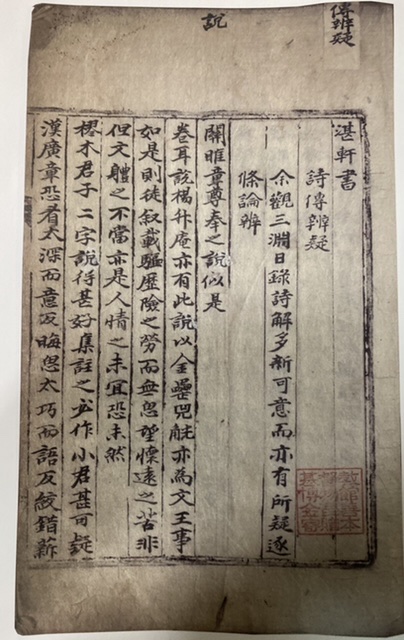 傳辨疑
說
湛軒書
詩傳辨疑
余觀三淵日錄詩解多新可意而亦有所疑逐
條論辨
關雎章尊奉之說似是
卷耳說楊升庵亦有此說以金罍兕觥亦為文王事
如是則徒叙載驅歷險之勞而無思望慄遠之苦非
但文體之不當亦是人情之未宜恐未然
樛木君子二字說得甚好集註之必作小君甚可疑
漢廣章恐看太深而意反晦思太巧而語反絞錯薪